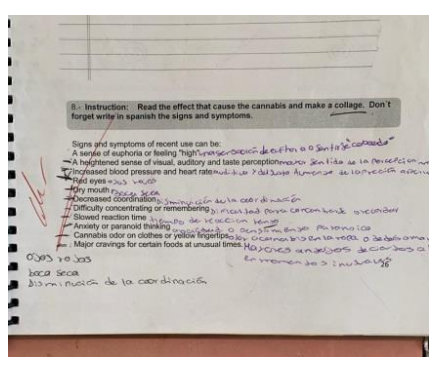 8.- Instruction: Read the effect that cause the cannabis and make a collage. Don't
forget write in spanish the signs and symptoms.
Signs and symptoms of recent use can be:
A sense of euphoria or feeling "high" una sensación de euforia o sentirse "colocado"
A heightened sense of visual, auditory and taste perception mayor sentido de la percepcion
Increased blood pressure and heart rate auditiva Aumento de la presión
Red eyes ojos rojos
Dry mouth boca seca
Decreased coordination disminución de la coordinación
Difficulty concentrating or remembering dificultad para concentrarse o recordar
Slowed reaction time tiempo de reaccion lento
Anxiety or paranoid thinking ansiedad o pensamiento paranoico
Cannabis odor on clothes or yellow fingertips olor a cannabis en la ropa o dedos
Major cravings for certain foods at unusual times. Mayores antojos de
en momentos inusuales
26
ojos rojos
boca seca
Disminución de la coordinación